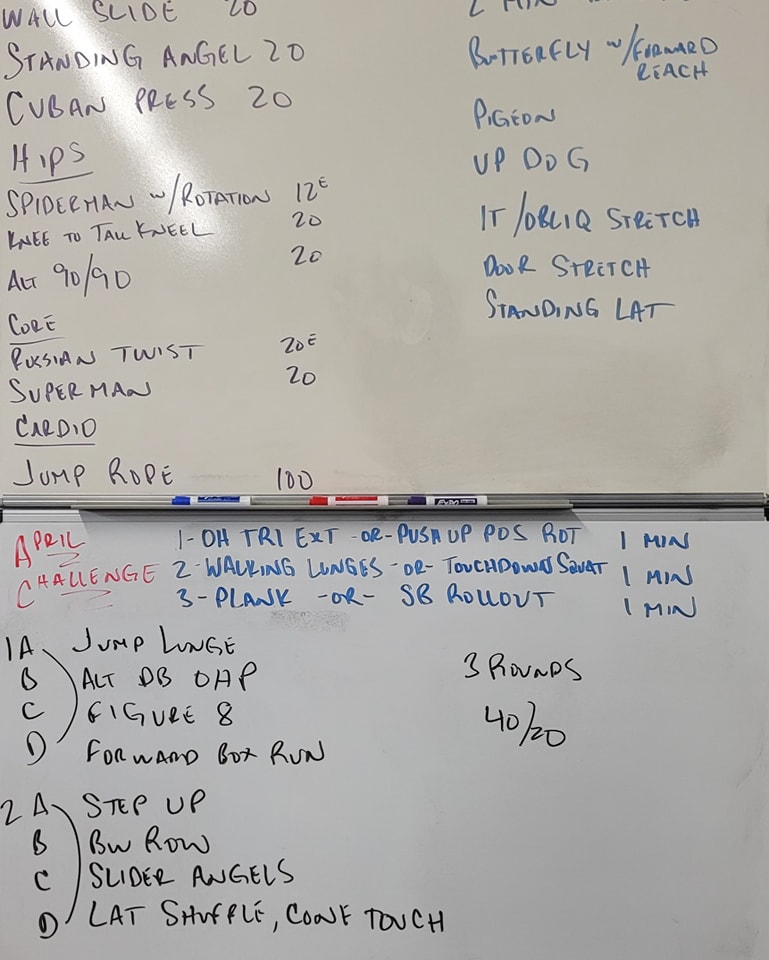 WALL SLIDE 20
STANDING ANGEL 20
CUBAN PRESS 20
HIPS
SPIDERMAN w/ROTATION 12E
KNEE TO TALL KNEEL 20
ALT 90/90 20
CORE
RUSSIAN TWIST 20E
SUPERMAN 20
CARDIO
JUMP ROPE 100
2 MIN
BUTTERFLY w/FORWARD
REACH
PIGEON
UP DOG
IT/OBLIQ STRETCH
DOOR STRETCH
STANDING LAT
EXPO
APRIL
CHALLENGE
1-OH TRI EXT -OR- PUSH UP POS ROT 1 MIN
2-WALKING LUNGES -OR- TOUCHDOWN SQUAT 1 MIN
3-PLANK -OR- SB ROLLOUT 1 MIN
1A JUMP LUNGE
B ALT DB OHP
C FIGURE 8
D FORWARD BOX RUN
3 ROUNDS
40/20
2 A STEP UP
B BW ROW
C SLIDER ANGELS
D LAT SHUFFLE, CONE TOUCH